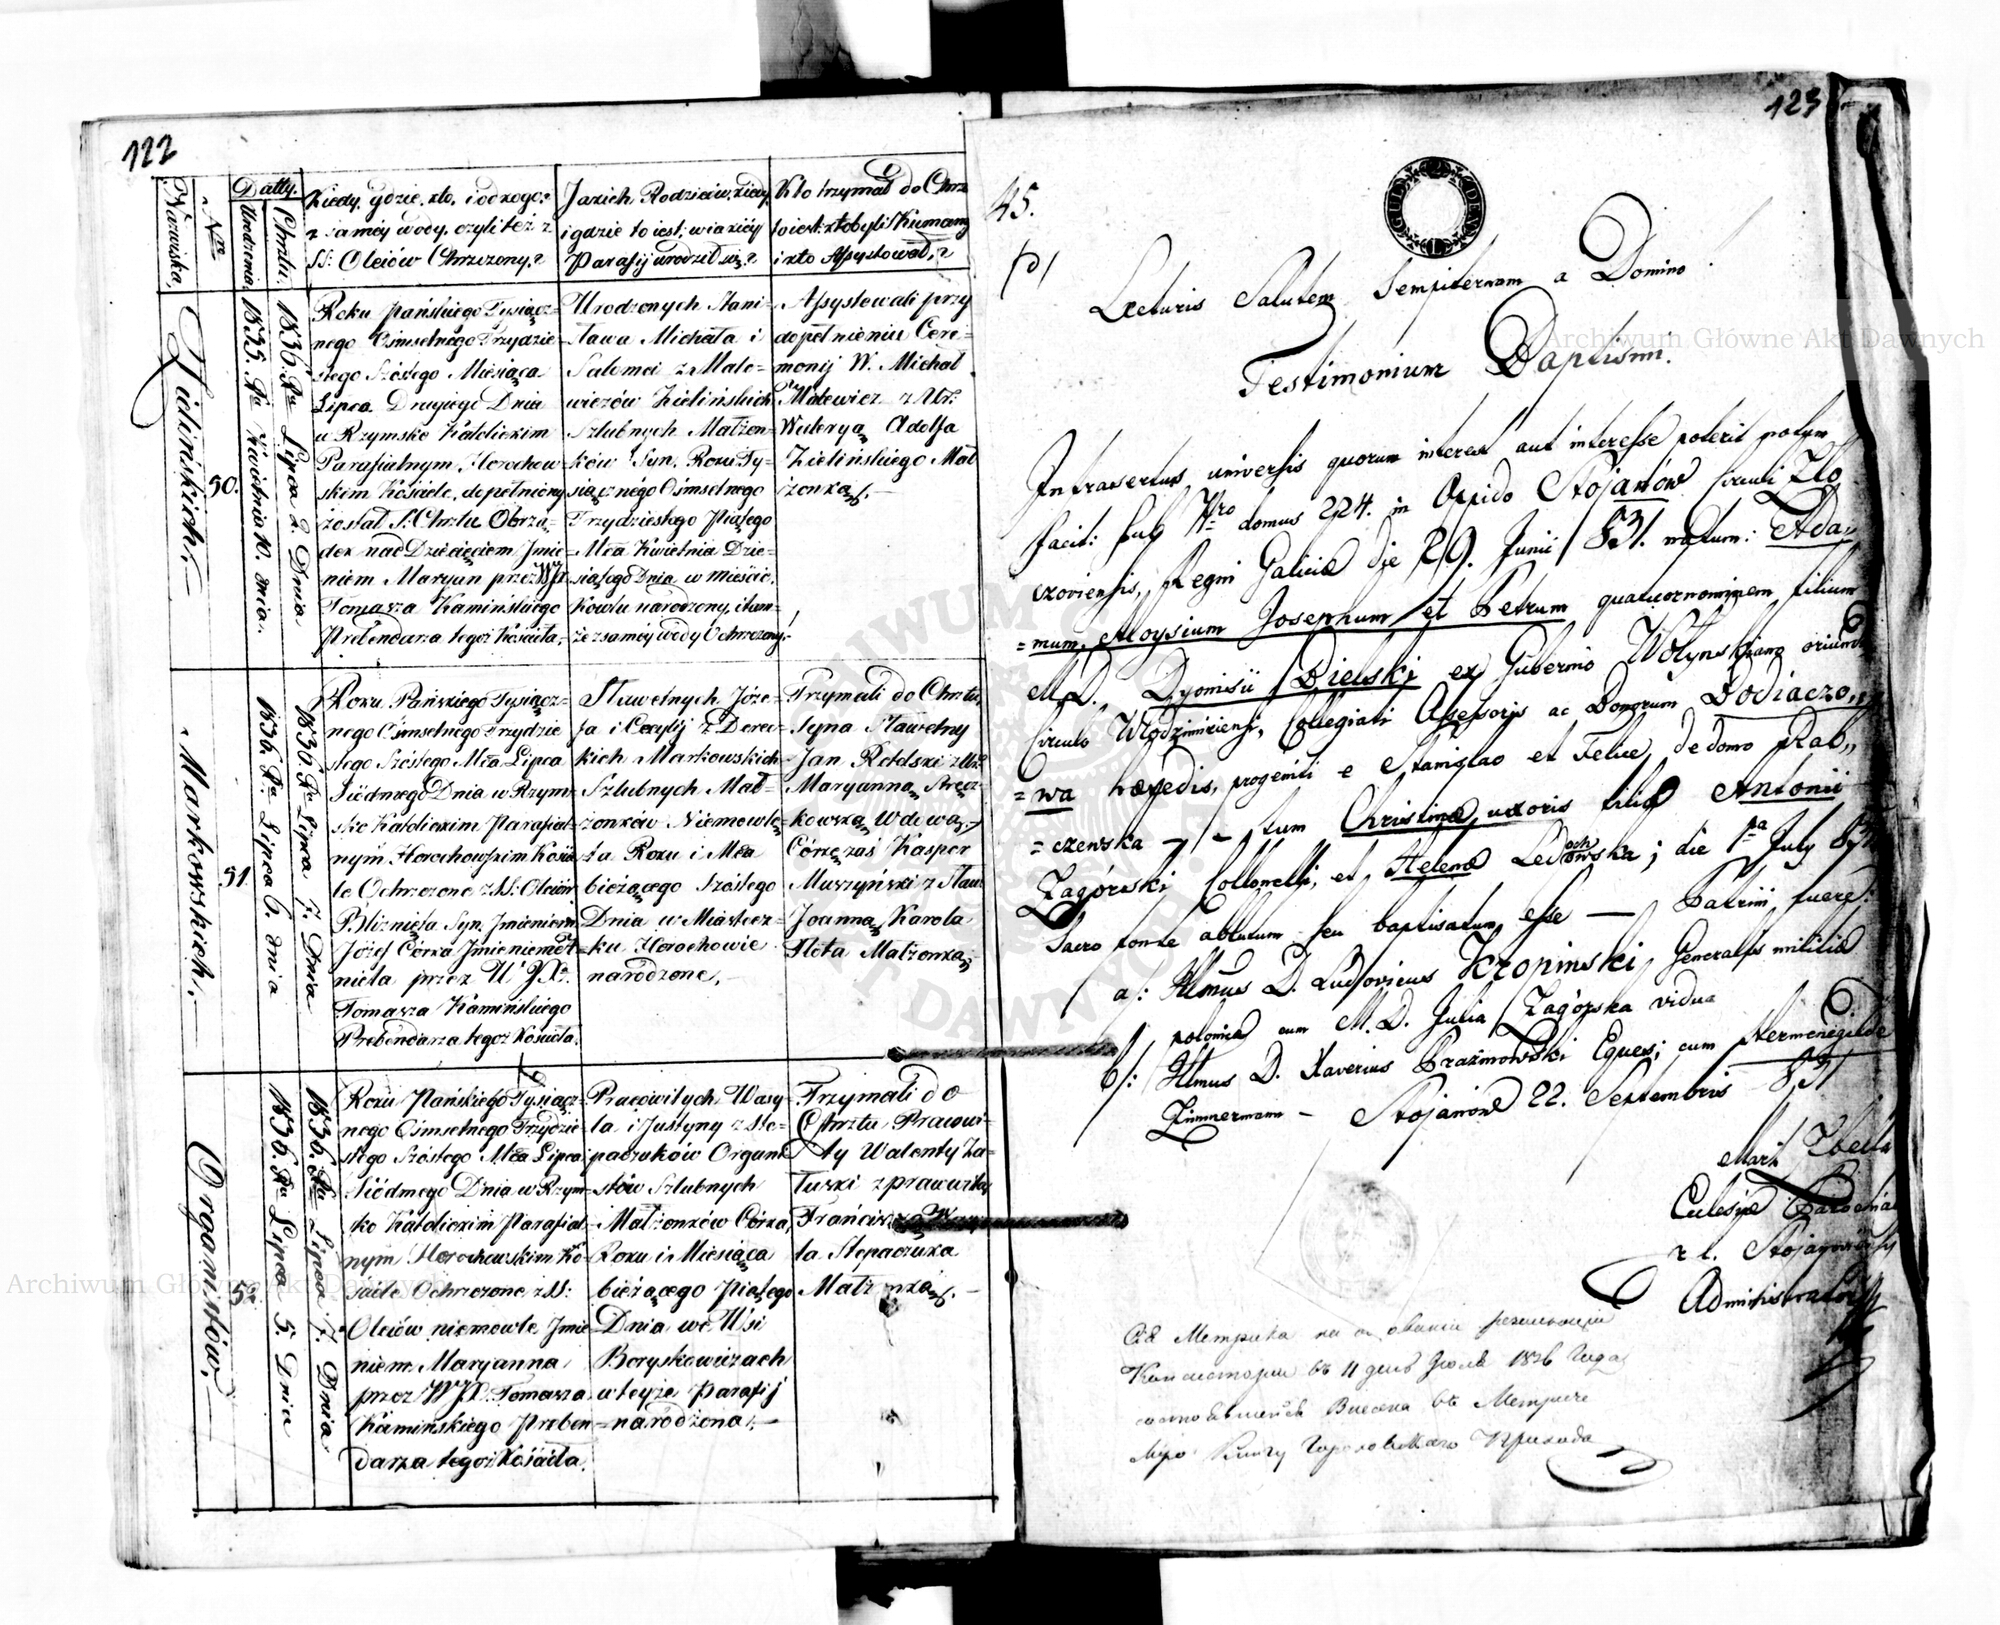 122
Nazwiska.
Nro
Datty.
Urodzenia.
Chrztu.
Kiedy, gdzie, kto, i od kogo?
z saméy wody, czyli też z
SS: Oleiów Chrzczony?
Jakich Rodziców, kiedy
i gdzie to iest, w iakiéy
Parafij urodził się?
Kto trzymał do Chrz
to iest: kto byli Kumamy
i kto Assystował?
Zielińskich.
50.
1835. Ru Kwietnia 10. dnia.
1836. Ru Lipca 2. Dnia
Roku Pańskiego Tysiącz=
nego Ośmsetnego Trzydzie=
stego Szóstego Miesiąca
Lipca Drugiego Dnia
w Rzymsko Katolickim
Parafialnym Horochow=
skim Kościele, dopełniony
został S: Chrztu Obrzą=
dek nad Dziecięciem Jmie=
niem Maryan przez WJX
Tomasza Kamińskiego
Prebendarza tegoż Kościoła.
Urodzonych Stani=
sława Michała i
Salomei z Male=
wiczów Zielińskich
Szlubnych Małżon=
ków Syn, Roku Ty=
siącznego Ośmsetnego
Trzydziestego Piątego
Mca Kwietnia Dzie=
siątego Dnia w mieście
Kowlu narodzony, i tam=
że z samey wody Ochrzczony.
Assystowali przy
dopełnieniu Cere=
monij W. Michał
Malewicz z Ur:
Waleryą Adolfa
Zielińskiego Mał
żonką.
Markowskich.
51
1836. Ru Lipca 6. dnia
1836 Ru Lipca 7. Dnia
Roku Pańskiego Tysiącz=
nego Ośmsetnego Trzydzie
stego Szóstego Mca Lipca
Siódmego Dnia w Rzym=
sko Katolickim Parafial=
nym Horochowskim Kościo
le Ochrzczone z SS: Oleiów
Bliźnięta Syn Jmieniem
Józef Córka Jmieniem
nieta przez WJX:
Tomasza Kamińskiego
Prebendarza tegoż Kościoła.
Sławetnych Józe=
fa i Cecylij z Derec=
kich Markowskich
Szlubnych Mał=
żonków Niemowlę=
ta Roku i Mca
bieżącego Szóstego
Dnia w Miastecz=
ku Horochowie
narodzone.
Trzymali do Chrztu,
Syna Sławetny
Jan Rolski z Ur:
Maryanną
kowską Wdową.
Córkę zaś Kasper
Muszyński z Sław:
Joanną Karola
Fleta Małżonką.
Organistów.
52.
1836. Ru Lipca 5. Dnia
1836. Ru Lipca 7. Dnia
Roku Pańskiego Tysiącz=
nego Ośmsetnego Trzydzie
stego Szóstego Mca Lipca
Siódmego Dnia w Rzym=
sko Katolickim Parafial=
nym Horochowskim Ko=
ściele Ochrzczone z SS:
Oleiów niemowle Jmie
niem Maryanna
przez WJX. Tomasza
Kamińskiego Preben=
darza tegoż Kościoła.
Pracowitych Wasy=
la i Justyny z Ste=
paczuków Organi
stów Szlubnych
Małżonków Córka,
Roku i Miesiąca
bieżącego Piątego
Dnia we Wsi
Boryskowiczach
w teyże Parafij
narodzona.
Trzymali do
Chrztu Pracowi=
ty Walenty Za=
łuski z pracowitą
ta Stepaczuka
Małżonką.
123
45.
GULDEN
Lecturis Salutem Sempiternam a Domino
Testimonium Baptismi.
Infrasertus universis quorum interest aut interesse poterit notum
facit: sub Nro domus 224. in Oppido Stojanów Circuli Zło
czoviensis, Regni Galiciæ die 29. Junii 831. natum: Ada=
=mum, Aloysium Josephum et Petrum quatuornominem filium
M.D. Dyonisii Bielski ex Gubernio Wołynskiano oriund
Circulo Włodzimiriensi, Collegiati Assesoris ac Bonorum Bodiaczo,,
=wa hæredis, progeniti e Stanislao et Felice, de domo Rab,,
=czewska — tum Christinæ uxoris filiæ Antonii
Zagórski Collonelli, et Helenæ Ledochowska; die 1ma July 831
Sacro fonte ablutum seu baptisatum esse — Patrini fuere:
a/: Illmus D. Ludovicus Kropinski, Generalis militiæ
polonicæ cum M.D. Julia Zagórska vidua
b/: Illmus D. Xaverius Prazmowski Eques; cum Hermenegilde
Zimmermann — Stojanow 22. Septembris 831
Eclesiæ Parochia
r. l. Stojanow
Administrator
Сiя Метрика на основанiи резолюцiи
Консисторiи въ 11 день Iюля 1836 Года
состоявшейся Внесена въ Метриче
скую Книгу Гороховскаго Прихода
Archiwum Główne Akt Dawnych
Archiwum Główne Akt Dawnych